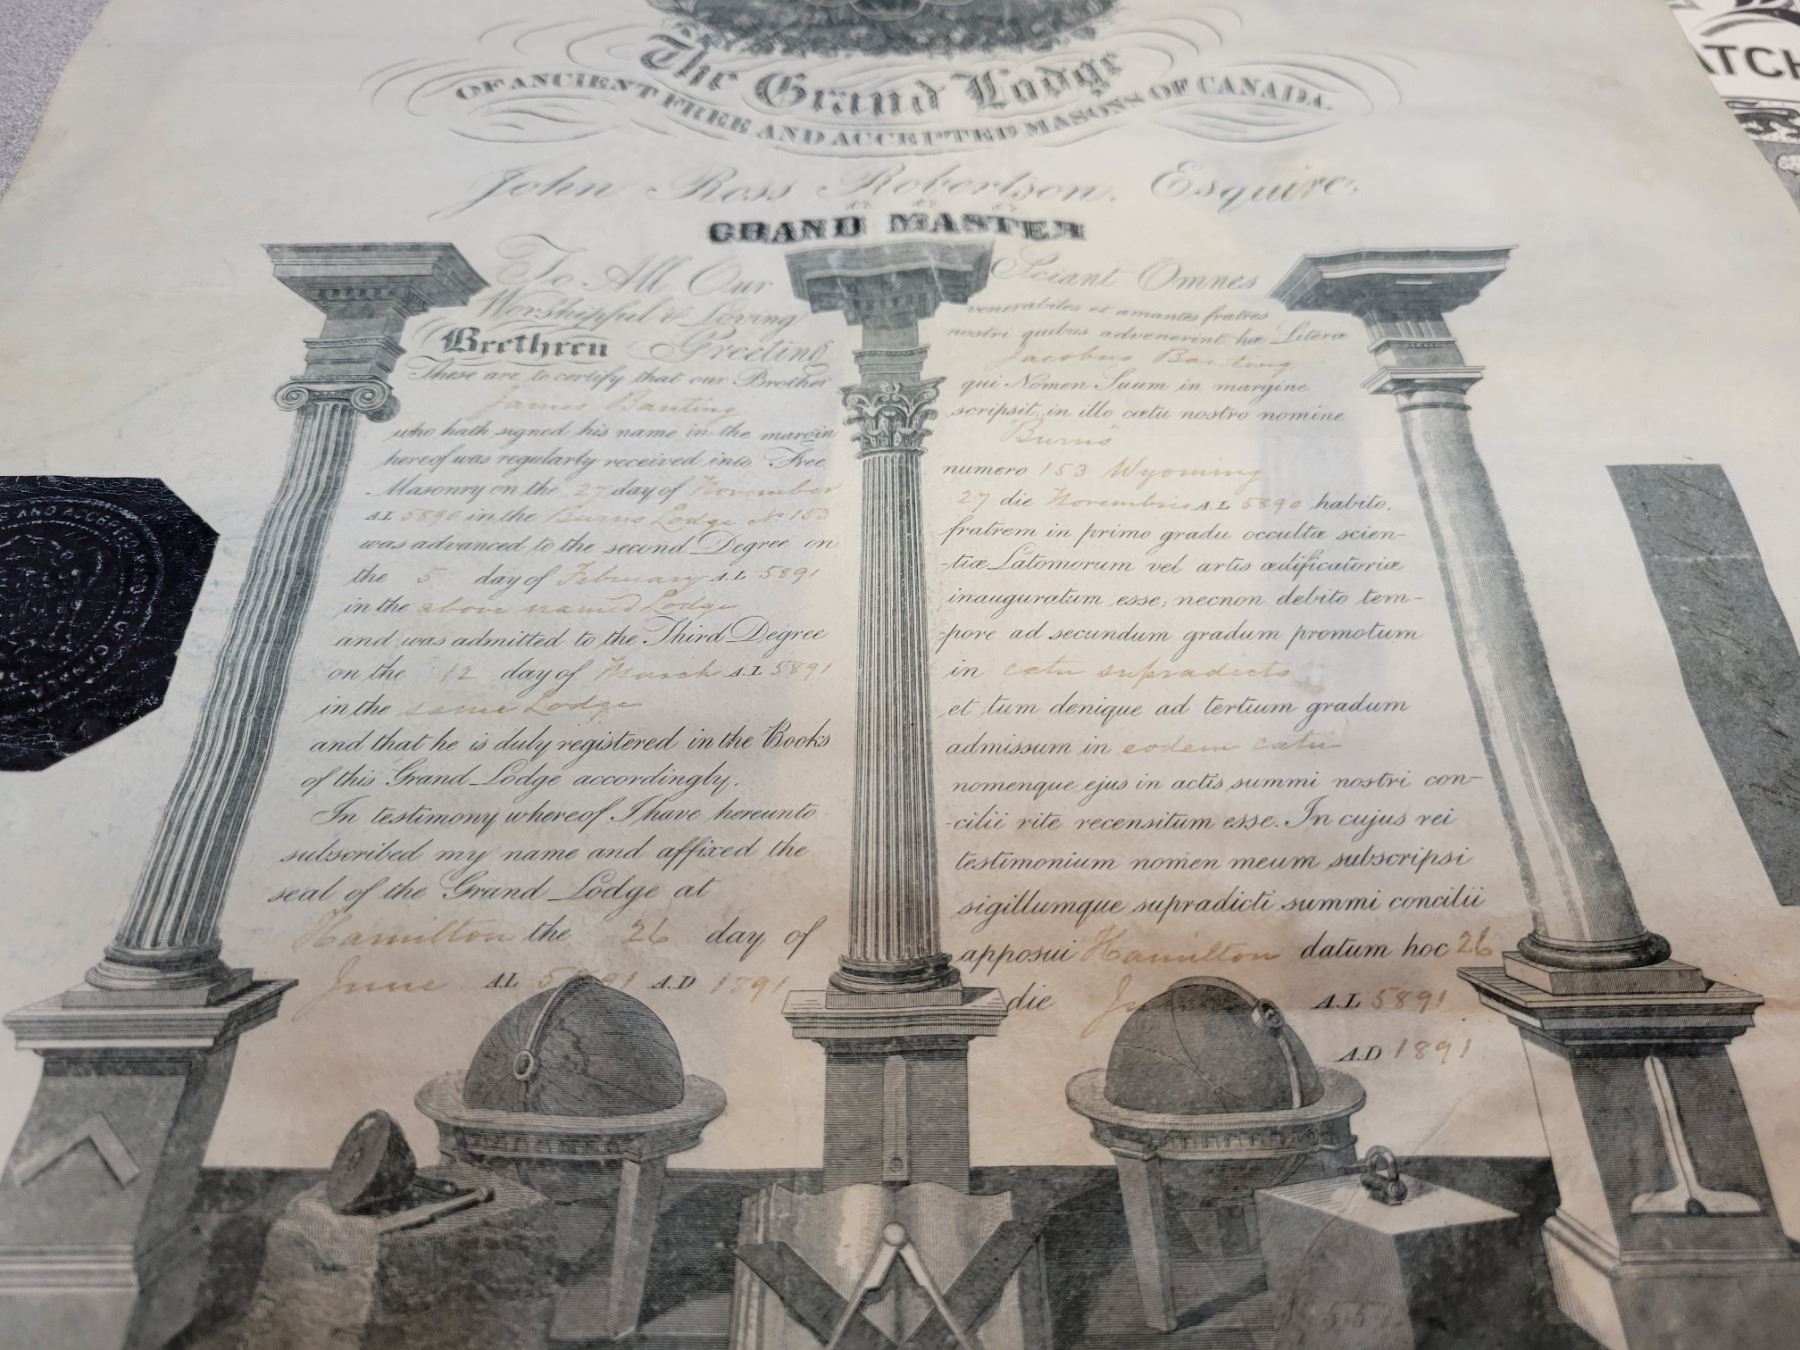 The Grand Lodge
OF ANCIENT FREE AND ACCEPTED MASONS OF CANADA.
John Ross Robertson, Esquire,
GRAND MASTER
To All Our
Worshipful & Loving
Brethren Greeting
These are to certify that our Brother
James Banting
who hath signed his name in the margin
hereof was regularly received into Free
Masonry on the 27 day of November
A.L 5890 in the Burns Lodge No 153
was advanced to the second Degree on
the 5 day of February A.L 5891
in the above named Lodge
and was admitted to the Third Degree
on the 12 day of March A.L 5891
in the same Lodge
and that he is duly registered in the Books
of this Grand Lodge accordingly.
In testimony whereof I have hereunto
subscribed my name and affixed the
seal of the Grand Lodge at
Hamilton the 26 day of
June A.L 5891 A.D 1891
Sciant Omnes
venerabiles et amantes fratres
nostri quibus advenerint hæ Literæ
Jacobus Banting
qui Nomen Suum in margine
scripsit, in illo cœtu nostro nomine
"Burns"
numero 153 Wyoming
27 die Novembris A.L 5890 habito,
fratrem in primo gradu occultæ scien-
-tiæ Latomorum vel artis ædificatoriæ
inauguratum esse; necnon debito tem-
-pore ad secundum gradum promotum
in cœtu supradicto
et tum denique ad tertium gradum
admissum in eodem cœtu
nomenque ejus in actis summi nostri con-
-cilii rite recensitum esse. In cujus rei
testimonium nomen meum subscripsi
sigillumque supradicti summi concilii
apposui Hamilton datum hoc 26
die A.L 5891
A.D 1891
AND ACCEPTED MASONS OF CAN
ATCH